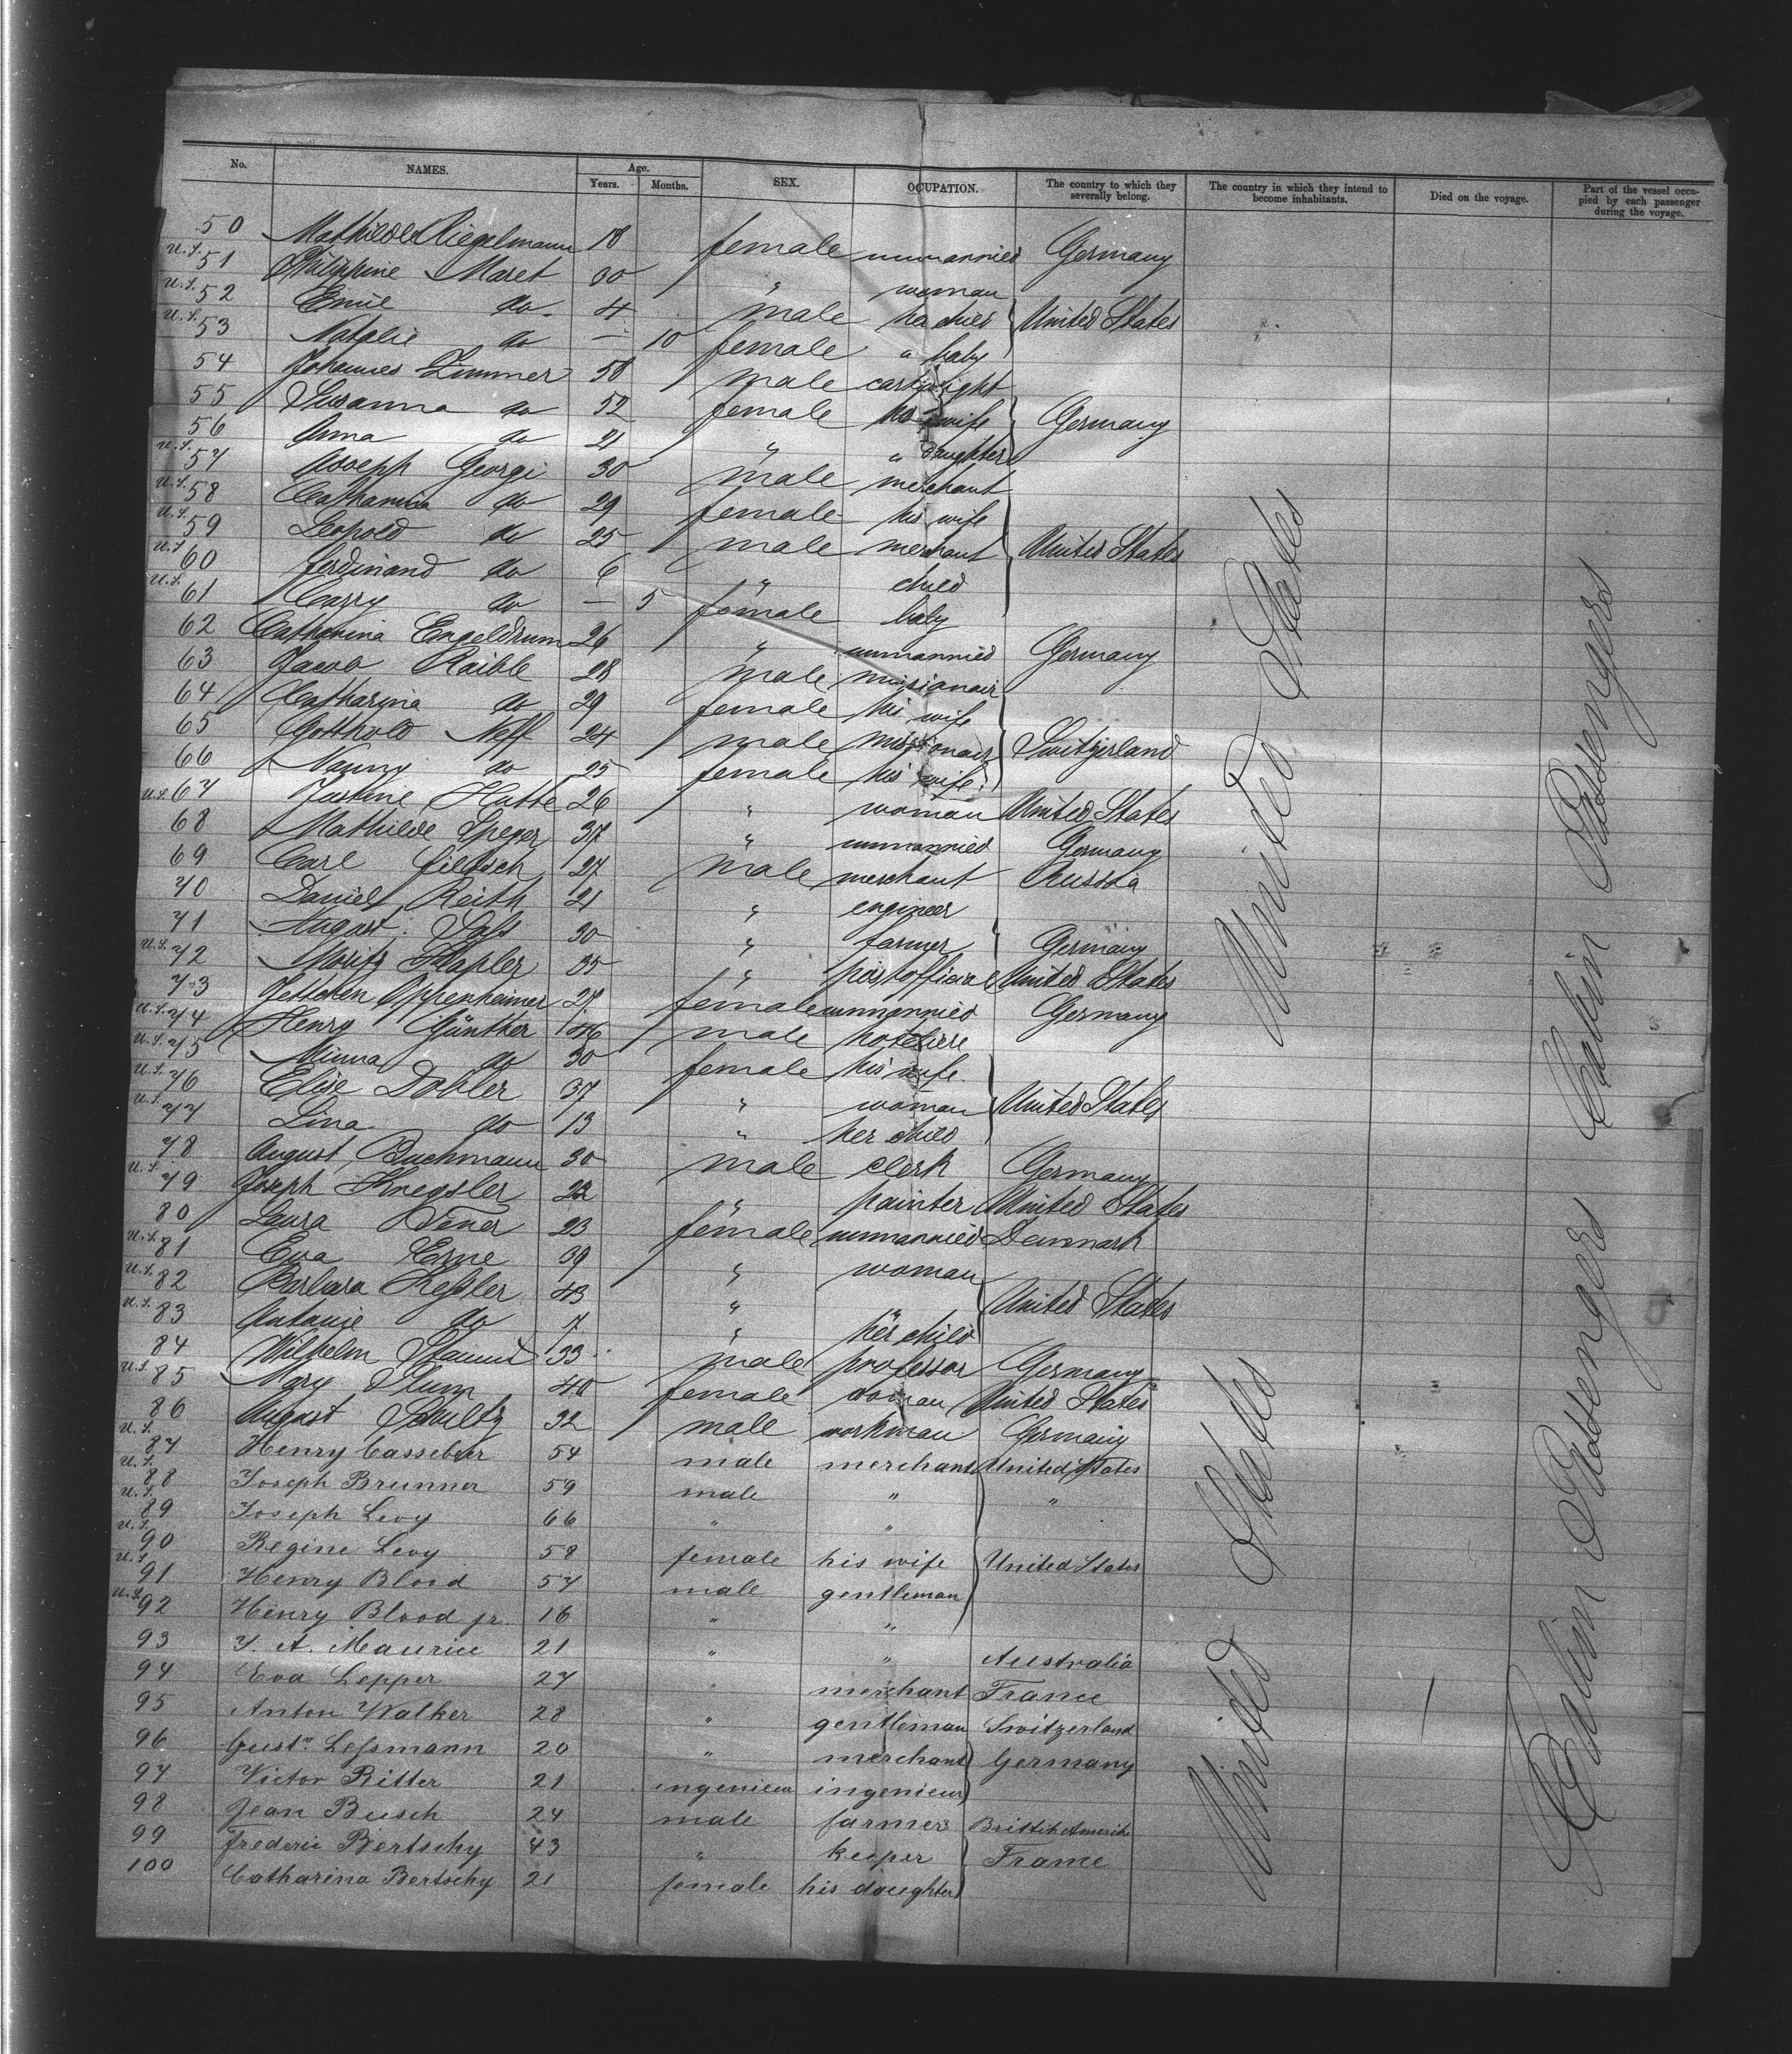 No. NAMES. Age. Years. Months. SEX. OCUPATION. The country to which they severally belong. The country in which they intend to become inhabitants. Died on the voyage. Part of the vessel occupied by each passenger during the voyage.
50 Mathilde Riegelmann 18 female unmarried Germany
U.S. 51 Philippine Maret 30 " woman
U.S. 52 Emil do 4 male her child United States
U.S. 53 Natalie do — 10 female " baby
54 Johannes Zimmer 58 male cartwright
55 Susanna do 52 female his wife Germany
56 Anna do 21 " " daughter
U.S. 57 Joseph Georgi 30 male merchant
U.S. 58 Catharina do 29 female his wife
U.S. 59 Leopold do 25 male merchant United States
U.S. 60 Ferdinand do 6 " child
U.S. 61 Carry do — 5 female baby
62 Catharina Engeldrum 26 " unmarried Germany
63 Jacob Raible 28 male missionair
64 Catharina do 29 female his wife
65 Gotthold Neff 24 male missionair Switzerland
66 Nanny do 25 female his wife
U.S. 67 Justine Hatte 26 " woman United States
68 Mathilde Speyer 37 " unmarried Germany
69 Carl 27 male merchant Russia
70 Daniel Reith 21 " engineer
71 August Sass 30 " farmer Germany
U.S. 72 Moritz 35 " postofficial United States
73 Jettchen Oppenheimer 27 female unmarried Germany
U.S. 74 Henry Günther 46 male hoteliere
U.S. 75 Minna do 30 female his wife
U.S. 76 Elise Dobler 37 " woman United States
U.S. 77 Lina do 13 " her child
78 August Buchmann 30 male clerk Germany
U.S. 79 Joseph 22 " painter United States
80 Laura 23 female unmarried Denmark
U.S. 81 Eva Erne 39 " woman
U.S. 82 Barbara Kessler 43 " " United States
U.S. 83 Antanie do 7 " her child
84 Wilhelm 33 male professor Germany
U.S. 85 Mary 40 female woman United States
86 August Schultz 32 male workman Germany
U.S. 87 Henry Cassebeer 54 male merchant United States
U.S. 88 Joseph Brunner 59 male " "
U.S. 89 Joseph Levy 66 " "
U.S. 90 Regine Levy 58 female his wife United States
U.S. 91 Henry Blood 57 male gentleman
U.S. 92 Henry Blood jr. 16 " "
93 Y. A. Maurice 21 " " Australia
94 Eva Lepper 27 " merchant France
95 Anton Walker 28 " gentleman Switzerland
96 Gust. Lessmann 20 " merchant Germany
97 Victor Ritter 21 ingenieur ingenieur
98 Jean Busch 24 male farmer Brittish Amerika
99 Frederic Bertschy 43 " keeper France
100 Catharina Bertschy 21 female his daughter
United States
United States
Cabin Passengers
Cabin Passengers